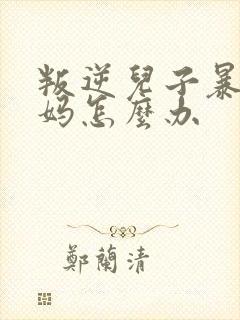 叛逆兒子暴
妈怎麼办
鄭蘭清